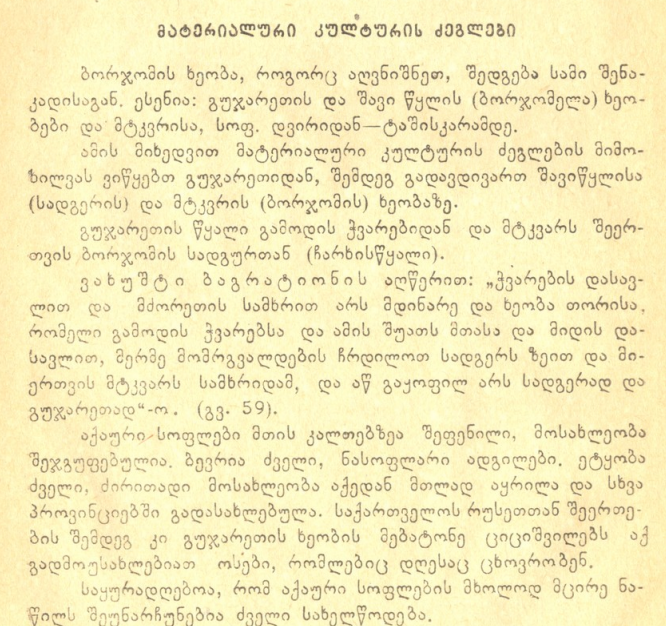 მატერიალური კულტურის ძეგლები
ბორჯომის ხეობა, როგორც აღვნიშნეთ, შედგება სამი შენა-
კადისაგან. ესენია: გუჯარეთის და შავი წყლის (ბორჯომელა) ხეო-
ბები და მტკვრისა, სოფ. დვირიდან—ტაშისკარამდე.
ამის მიხედვით მატერიალური კულტურის ძეგლების მიმო-
ხილვას ვიწყებთ გუჯარეთიდან, შემდეგ გადავდივართ შავიწყლისა
(სადგერის) და მტკვრის (ბორჯომის) ხეობაზე.
გუჯარეთის წყალი გამოდის ჭვარებიდან და მტკვარს შეერ-
თვის ბორჯომის სადგურთან (ჩარხისწყალი).
ვახუშტი ბაგრატიონის აღწერით: „ჭვარების დასავ-
ლით და მძორეთის სამხრით არს მდინარე და ხეობა თორისა,
რომელი გამოდის ჭვარებსა და ამის შუათს მთასა და მიდის და-
სავლით, მერმე მომრგვალდების ჩრდილოთ სადგერს ზეით და მი-
ერთვის მტკვარს სამხრიდამ, და აწ გაყოფილ არს სადგერად და
გუჯარეთად“-ო. (გვ. 59).
აქაური სოფლები მთის კალთებზეა შეფენილი, მოსახლეობა
შეჯგუფებულია. ბევრია ძველი, ნასოფლარი ადგილები. ეტყობა
ძველი, ძირითადი მოსახლეობა აქედან მთლად აყრილა და სხვა
პროვინციებში გადასახლებულა. საქართველოს რუსეთთან შეერთე-
ბის შემდეგ კი გუჯარეთის ხეობის მებატონე ციციშვილებს აქ
გადმოუსახლებიათ ოსები, რომლებიც დღესაც ცხოვრობენ.
საყურადღებოა, რომ აქაური სოფლების მხოლოდ მცირე ნა-
წილს შეუნარჩუნებია ძველი სახელწოდება.